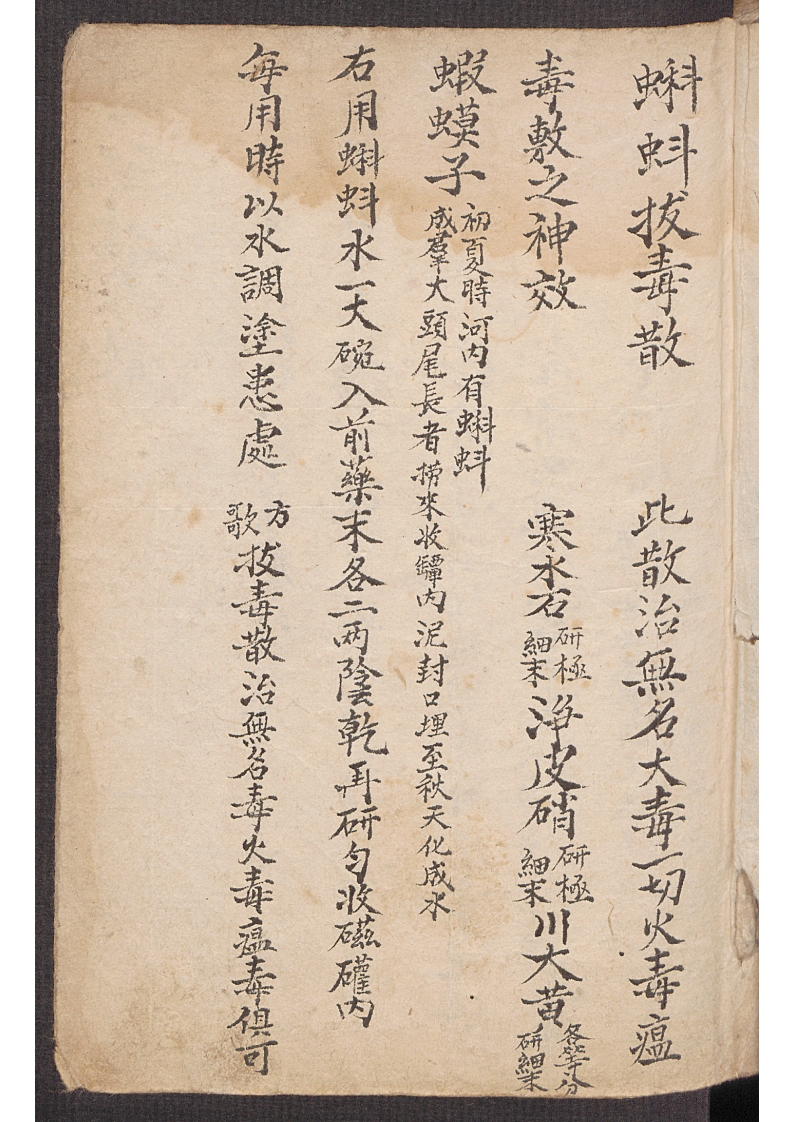 蝌蚪拔毒散 此散治無名大毒一切火毒瘟
毒敷之神效 寒水石研極細末淨皮硝研極細末川大黄各等分研細末
蝦蟆子初夏時河内有蝌蚪成羣大頭尾長者撈來收罈内泥封口埋至秋天化成水
右用蝌蚪水一大碗入前藥末各二两陰乾再研匀收磁礶内
每用時以水調塗患處 方歌拔毒散治無名毒火毒瘟毒俱可